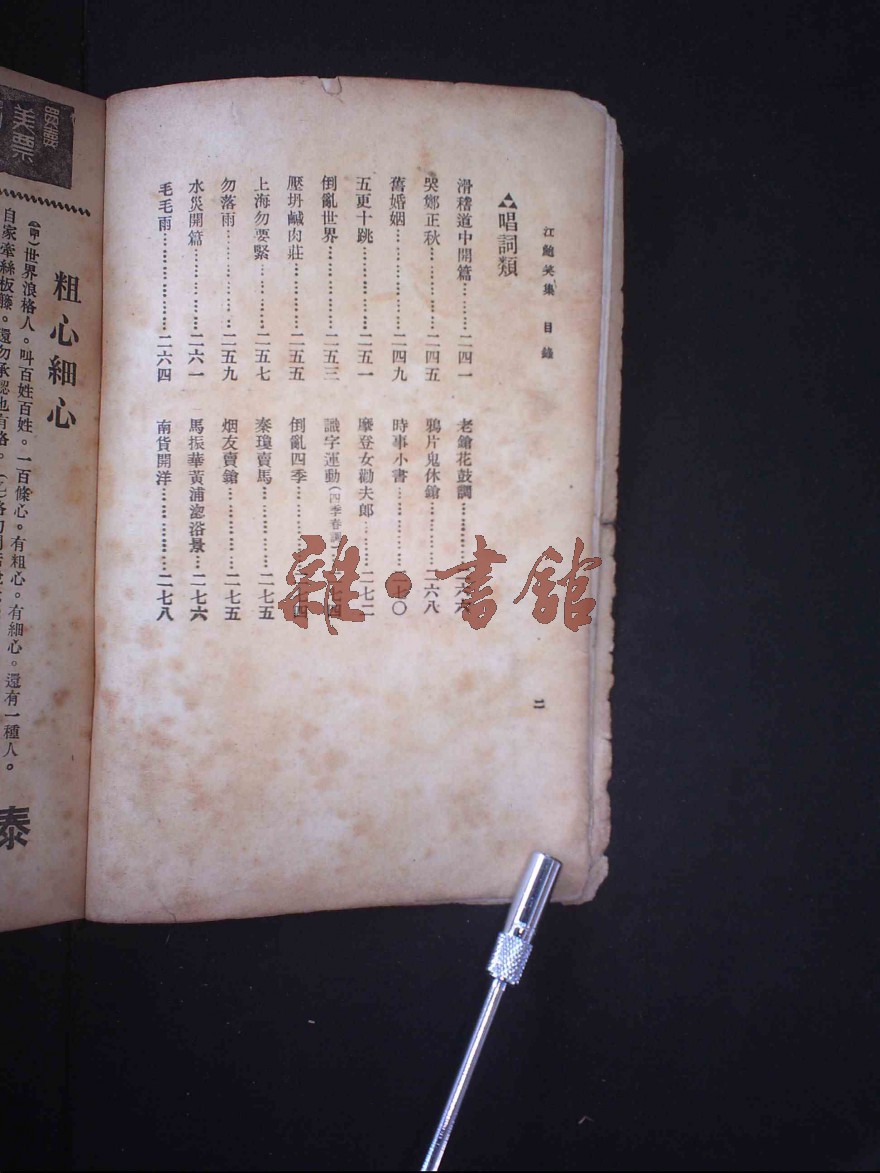 江鮑笑集 目錄
唱詞類
滑稽道中開篇………二四一
哭鄭正秋……………二四五
舊婚姻………………二四九
五更十跳……………二五一
倒亂世界……………二五三
壓坍鹹肉莊…………二五五
上海勿要緊…………二五七
勿落雨………………二五九
水災開篇……………二六一
毛毛雨………………二六四
老鎗花鼓調…………二六六
鴉片鬼休鎗…………二六八
時事小書……………二七〇
摩登女勸夫郎………二七二
識字運動(四季春調)…二七四
倒亂四季……………二七四
秦瓊賣馬……………二七五
烟友賣鎗……………二七五
馬振華黃浦㴋浴景…二七六
南貨開洋……………二七八
二
雜·書館
美票
粗心細心
(甲)世界浪格人。叫百姓百姓。一百條心。有粗心。有細心。還有一種人。
自家牽絲板藤。還勿承認也有格。
泰